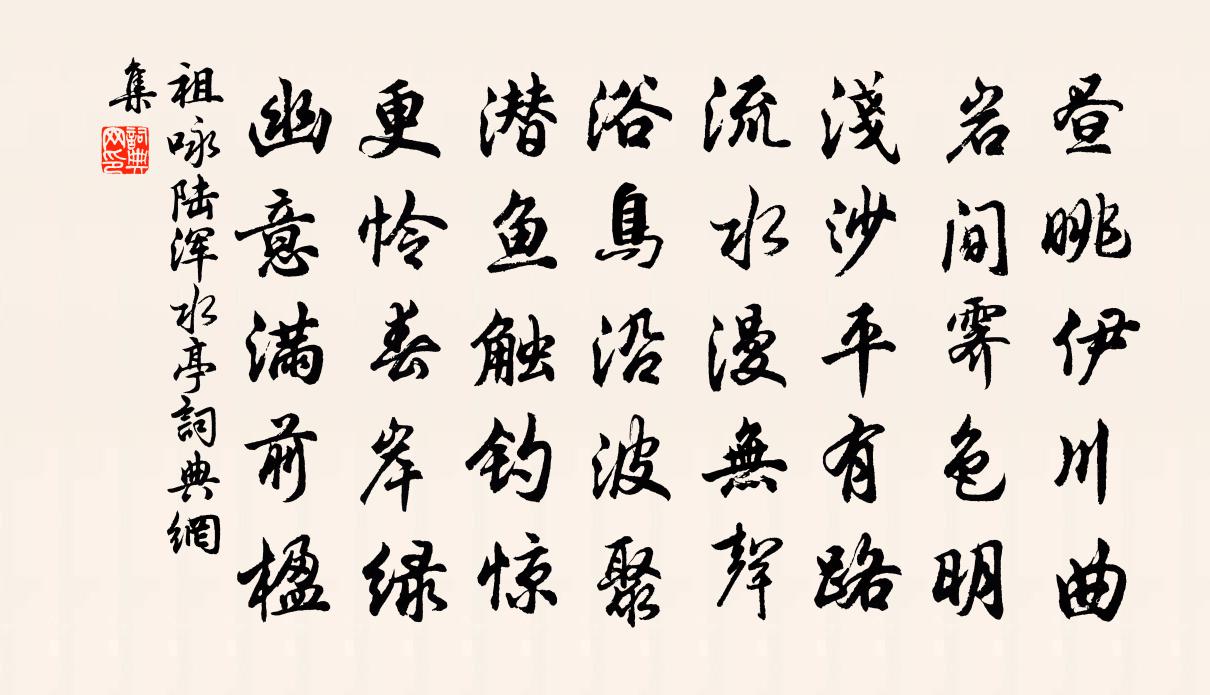 昼眺伊川曲
岩间霁色明
淺沙平有路
流水漫無聲
浴鳥沿波聚
潜鱼触钓惊
更怜春岸绿
幽意满前楹
祖咏陆浑水亭詞典網
集
詞典网印